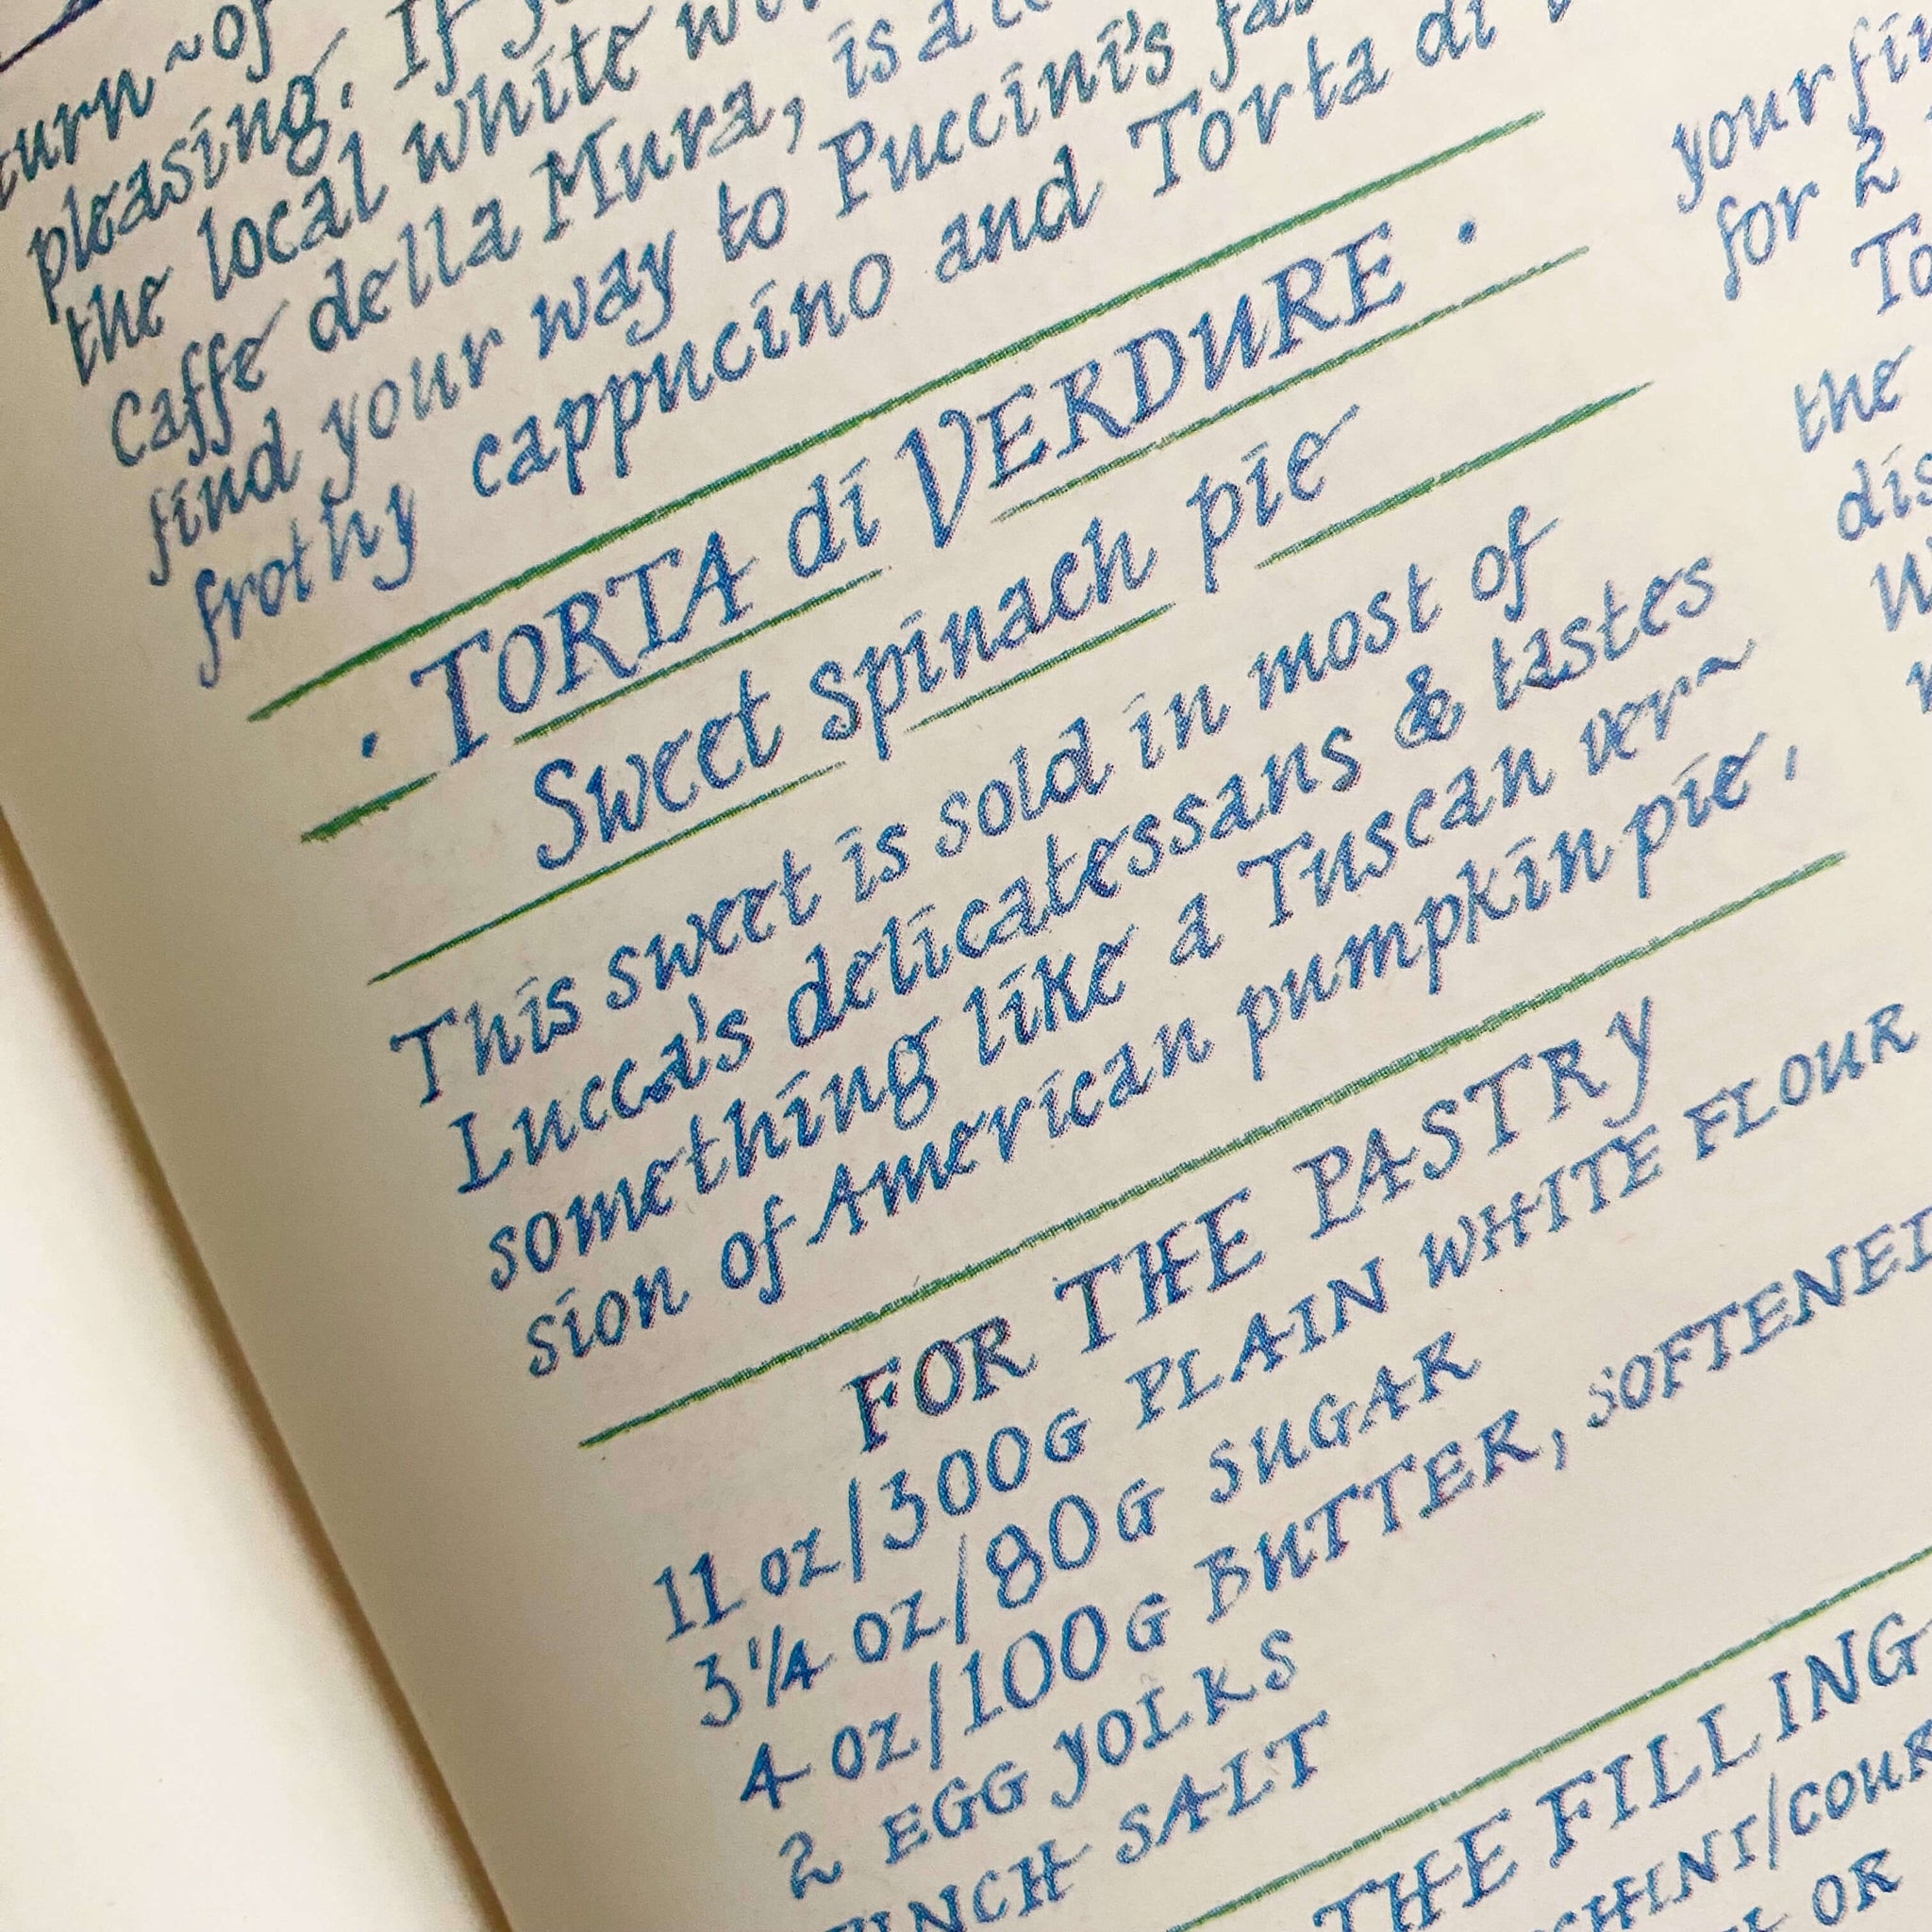 turn~of
pleasing. If
the local white
Caffe della Mura, is a
find your way to Puccini's
frothy cappucino and Torta di
· TORTA di VERDURE ·
Sweet spinach pie
This sweet is sold in most of
Lucca's delicatessans & tastes
something like a Tuscan ver~
sion of American pumpkin pie,
FOR THE PASTRY
11 OZ/300G PLAIN WHITE FLOUR
3¼ OZ/80G SUGAR
4 OZ/100G BUTTER, SOFTENED
2 EGG YOLKS
PINCH SALT
THE FILLING
OR
your
for 2
the